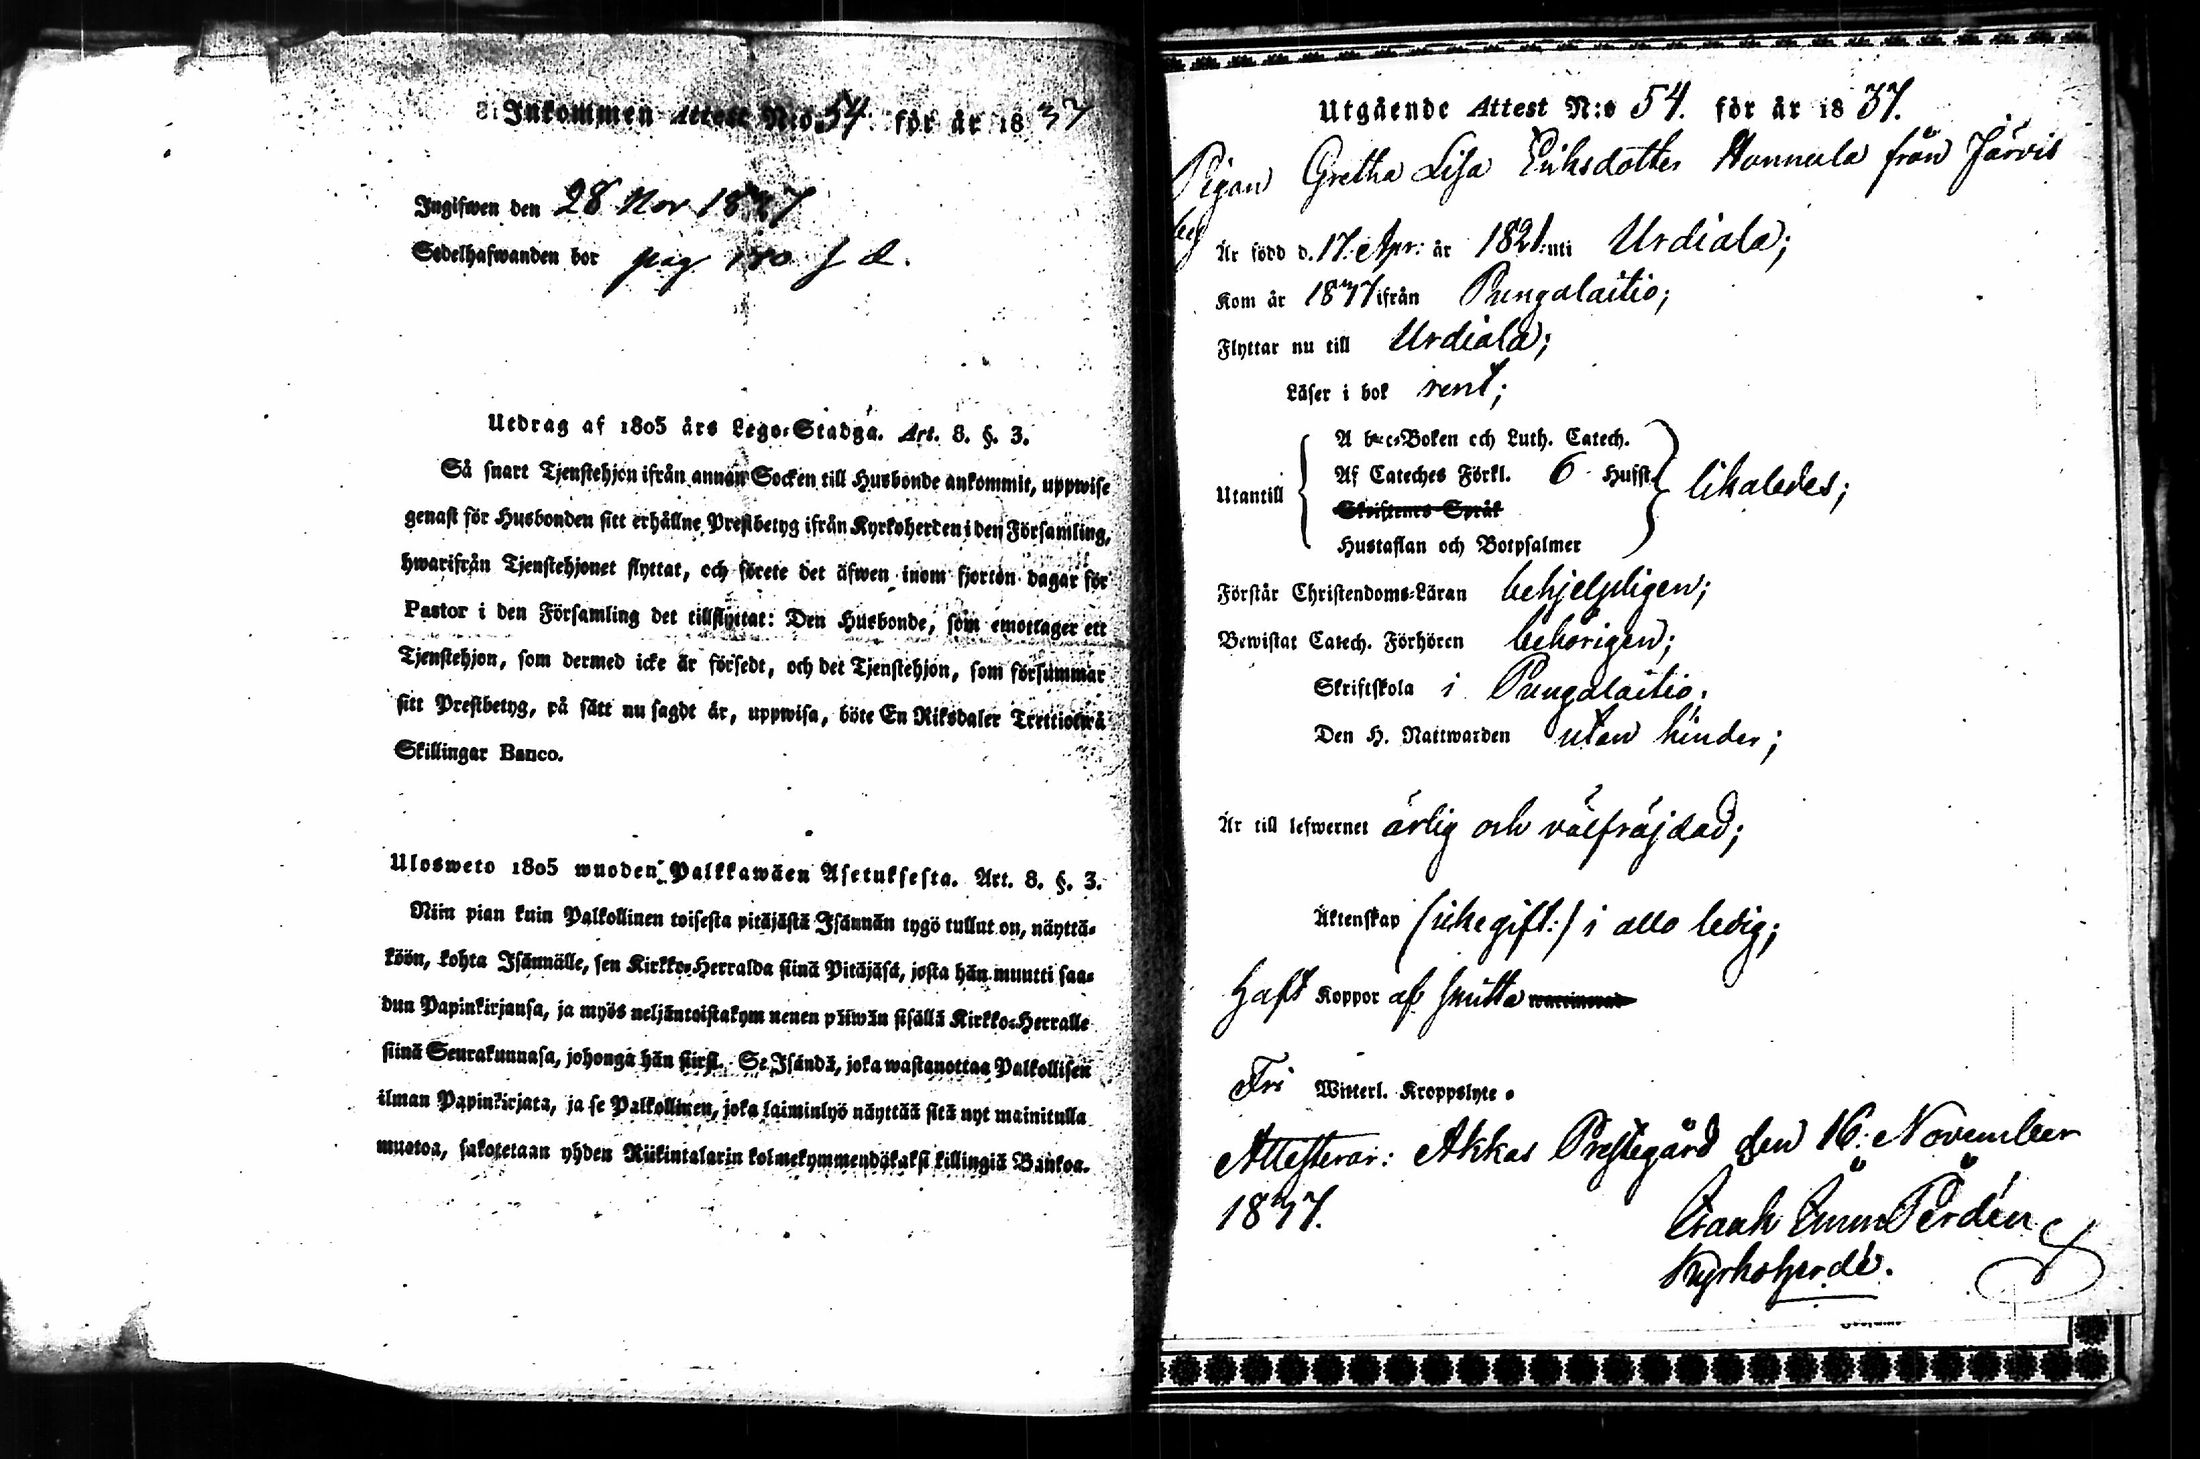 Inkommen Attest N:o 54. för år 1837
Ingifwen den 28 Nov 1837
Sedelhafwanden bor pag
Utdrag af 1805 års Lego-Stadga. Art. 8. §. 3.
Så snart Tjenstehjon ifrån annan Socken till Husbonde ankommit, uppwise
genast för Husbonden sitt erhållne Prestbetyg ifrån Kyrkoherden i den Församling,
hwarifrån Tjenstehjonet flyttat, och förete det äfwen inom fjorton dagar för
Pastor i den Församling det tillflyttat: Den Husbonde, som emottager ett
Tjenstehjon, som dermed icke är försedt, och det Tjenstehjon, som försummar
sitt Prestbetyg, på sätt nu sagdt är, uppwisa, böte En Riksdaler Trettiotwå
Skillingar Banco.
Ulosweto 1805 wuoden Palkkawäen Asetuksesta. Art. 8. §. 3.
Niin pian kuin Palkollinen toisesta pitäjästä Isännän tygö tullut on, näyttä-
köön, kohta Isännälle, sen Kirkko-Herralda siinä Pitäjäsä, josta hän muutti saa-
dun Papinkirjansa, ja myös neljäntoistakymmenen päiwän sisällä Kirkko-Herralle
siinä Seurakunnasa, johonga hän siirst. Se Isändä, joka wastanottaa Palkollisen
ilman Papinkirjata, ja se Palkollinen, joka laiminlyö näyttää sitä nyt mainitulla
muotoa, sakotetaan yhden Riikintalarin kolmekymmendökaksi killingiä Bankoa.
Utgående Attest N:o 54. för år 1837.
Pigan Gretha Lisa Eriksdotter Hannula från Järvis
Är född d. 17. Apr: år 1821:nti Urdiala;
Kom år 1837 ifrån Pungalaitio;
Flyttar nu till Urdiala;
Läser i bok rent;
A b-c-Boken och Luth. Catech.
Af Cateches Förkl. 6 Hufst.
Utantill likaledes;
Skriftenes Språk
Hustaflan och Botpsalmer
Förstår Christendoms-Läran behjelpligen;
Bewistat Catech. Förhören behörigen;
Skriftskola i Pungalaitio;
Den H. Nattwarden utan hinder;
Är till lefwernet ärlig och välfräjdad;
Äktenskap (icke gift:) i allo ledig;
Haft Koppor af smitta
Fri Witterl. Kroppslyte.
Attesterar: Akkas Prestegård den 16. November
1837.
Perdén
Kyrkoherde.